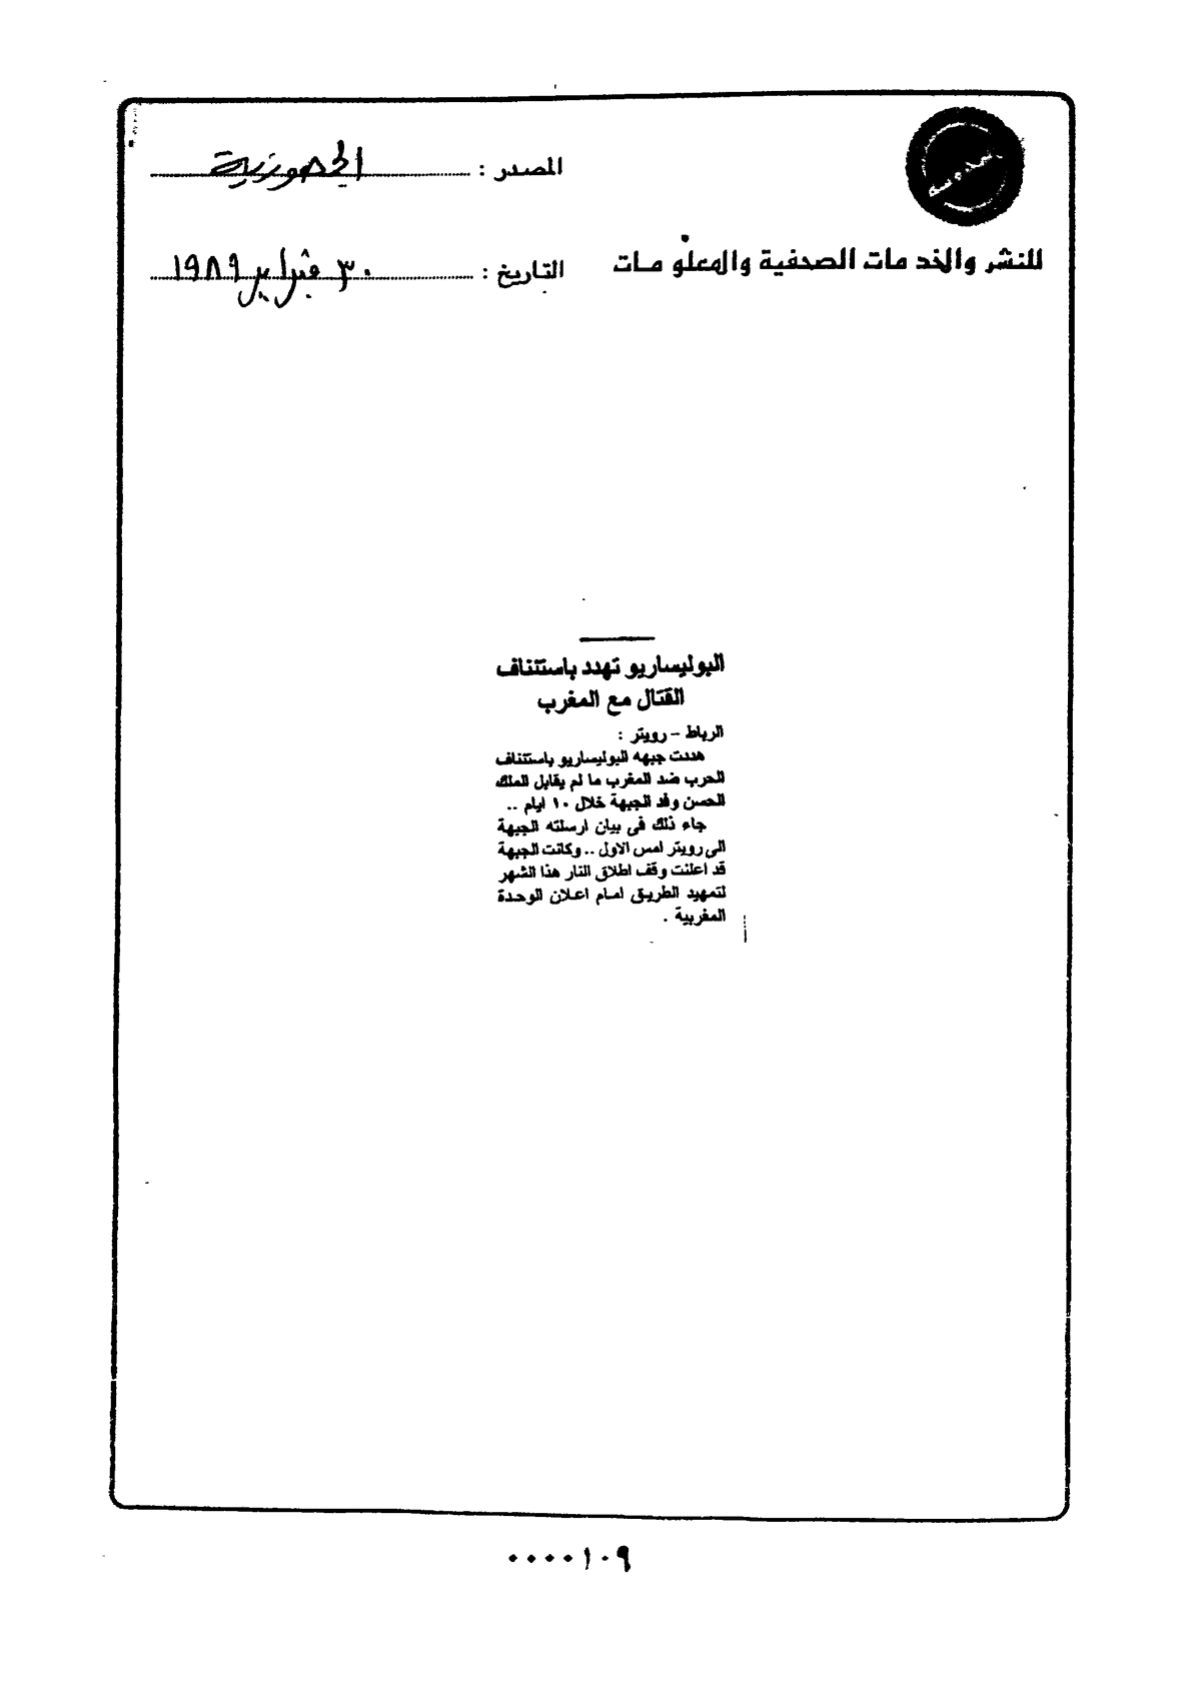 المصدر : الجمهورية
للنشر والخدمات الصحفية والمعلومات
التاريخ : ٣٠ فبراير ١٩٨٩
البوليساريو تهدد باستئناف
القتال مع المغرب
الرباط - رويتر :
هددت جبهه البوليساريو باستئناف
الحرب ضد المغرب ما لم يقابل الملك
الحسن وفد الجبهة خلال ١٠ ايام ..
جاء ذلك فى بيان ارسلته الجبهة
الى رويتر امس الاول .. وكانت الجبهة
قد اعلنت وقف اطلاق النار هذا الشهر
لتمهيد الطريق امام اعلان الوحدة
المغربية .
٠٠٠٠١٠٩